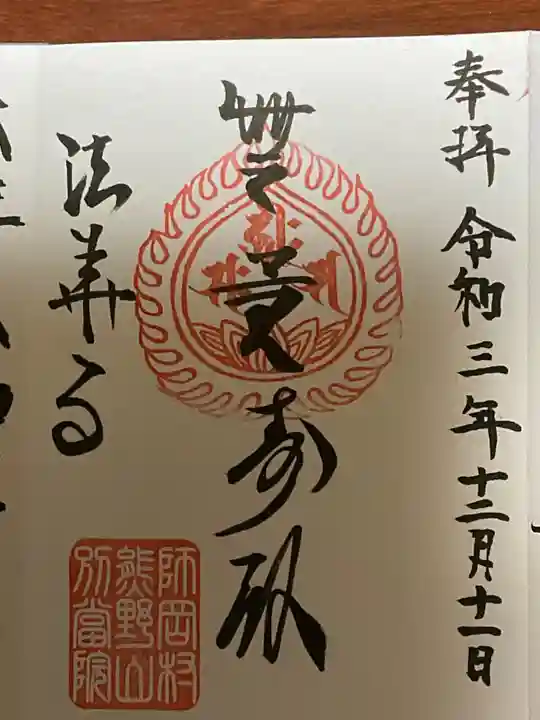 奉拝 令和三年十二月十一日
無量寿殿
法華寺
師岡村
熊野山
別當院